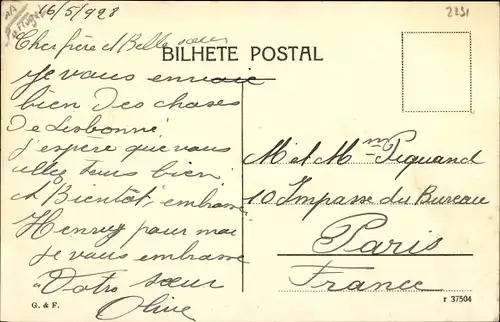 16/5/1928
2231
Cher frère et Belle soeur
BILHETE POSTAL
Je vous envoie
bien des choses
de Lisbonne
j'espère que vous
allez tous bien
et Bientôt, embrasse
Henry pour moi
je vous embrasse
Votre soeur
Olive
M et Mme Piquand
10 Impasse du Bureau
Paris
France
G. & F.
r 37504